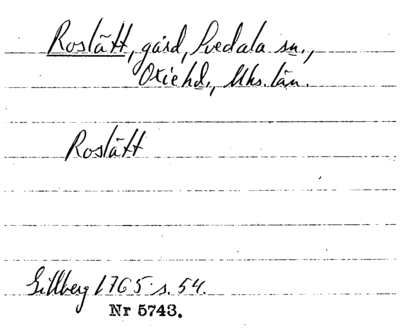 Roslätt, gård, Svedala sn.,
Oxie hd., Mhs. län.
Roslätt
Gillberg 1765 s. 54.
Nr 5743.